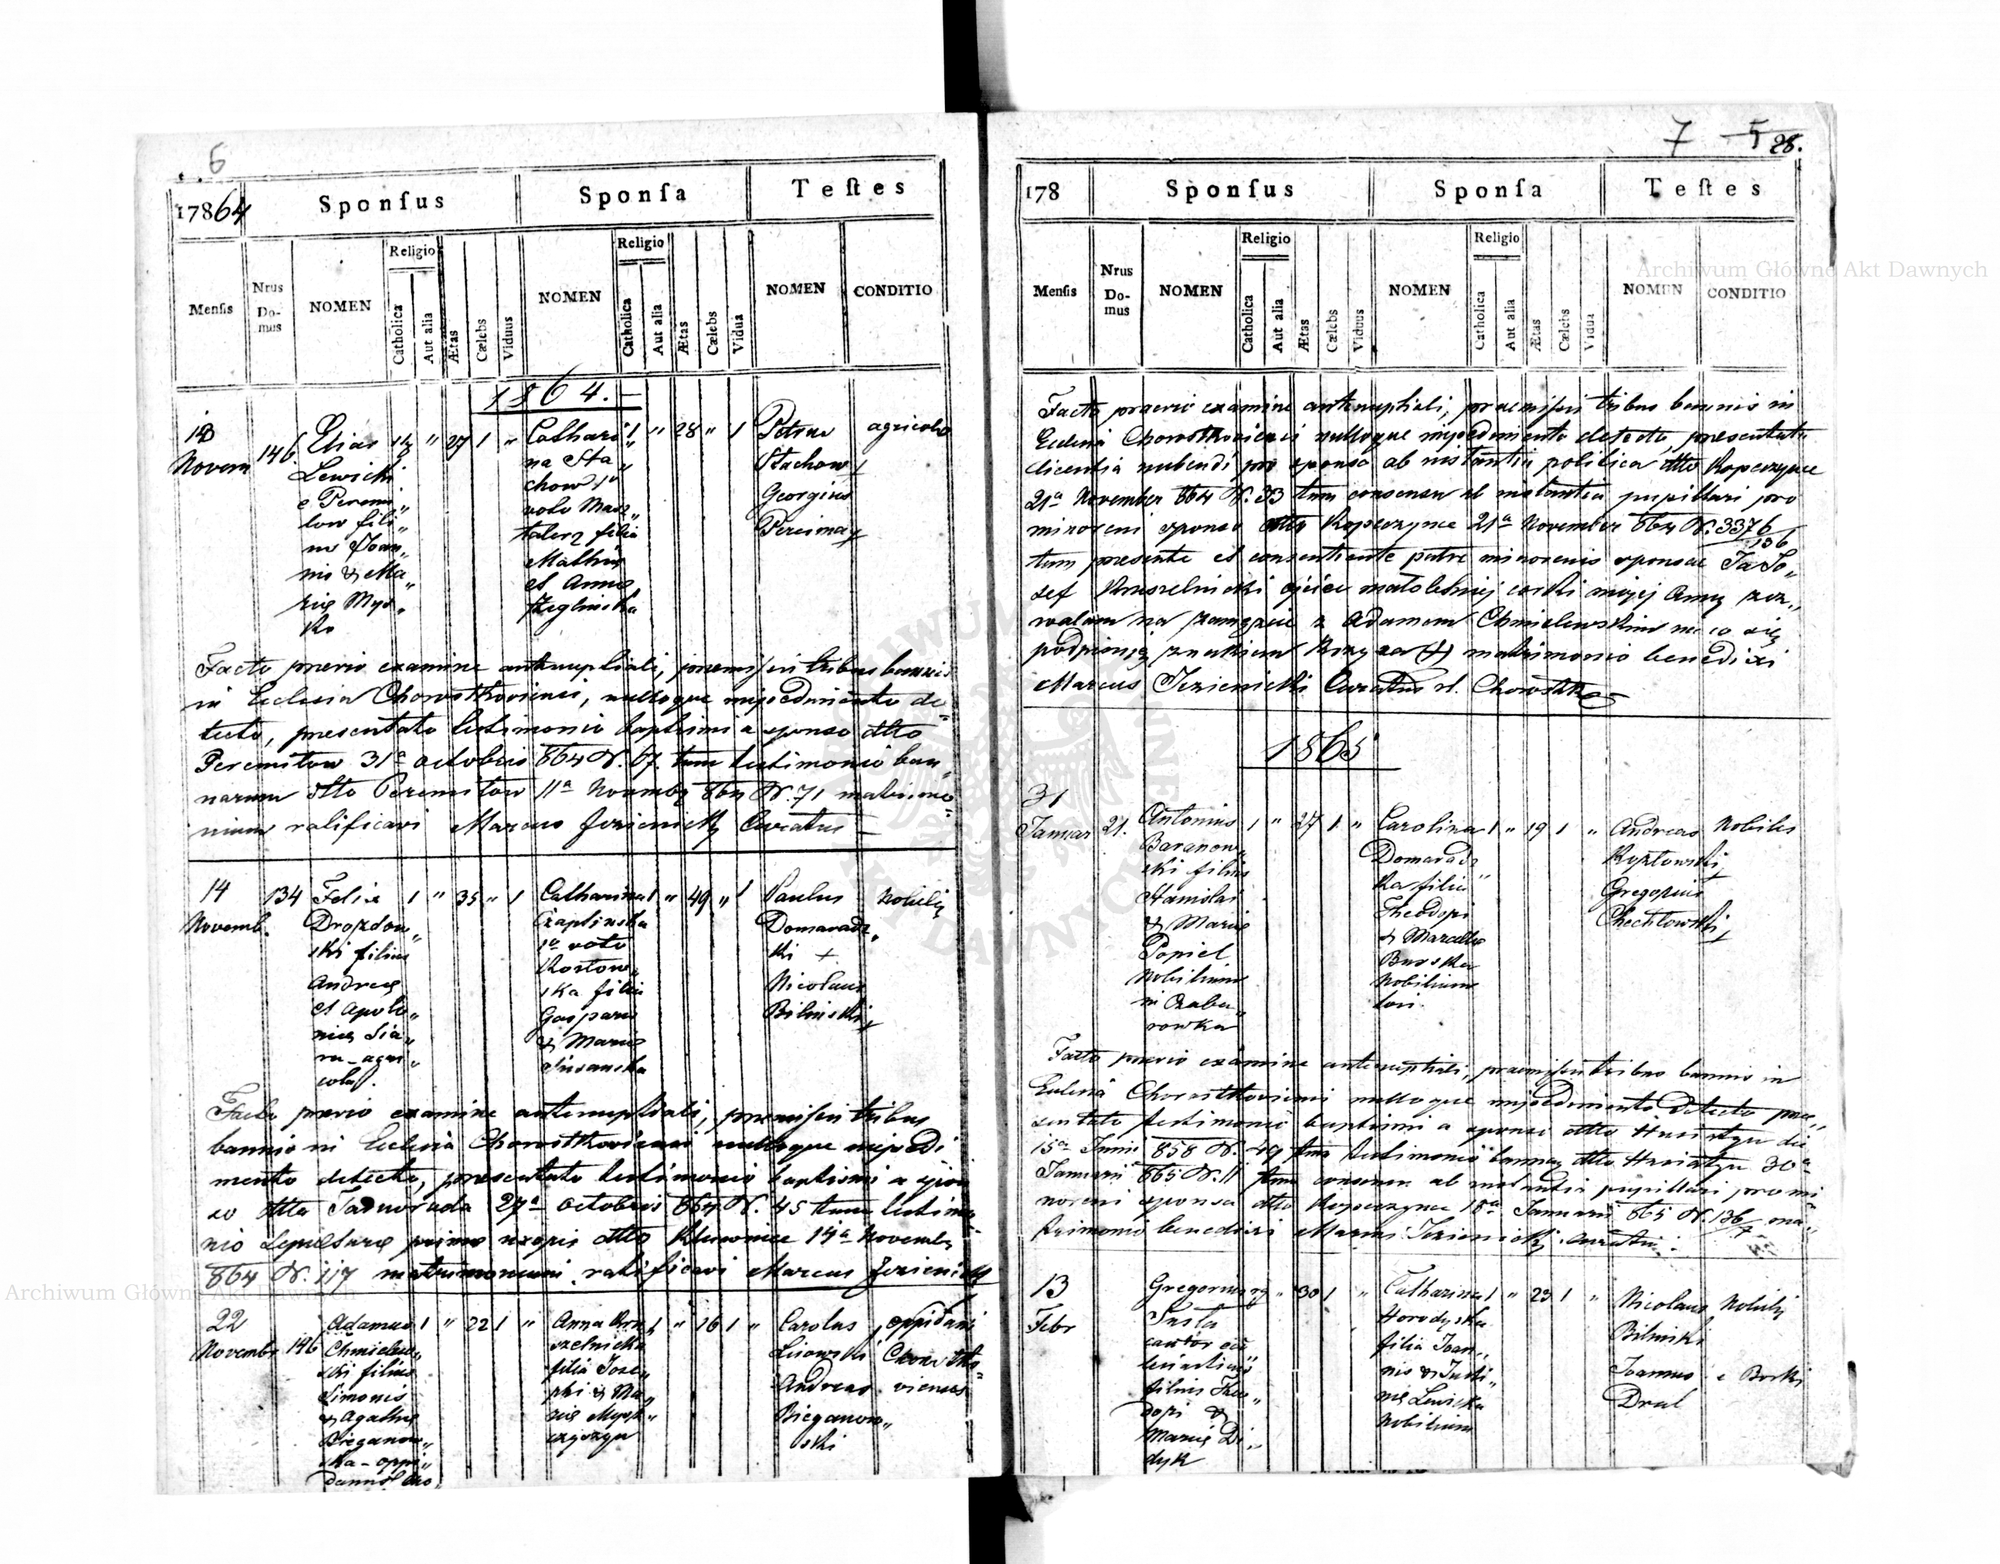 6
17864
Sponſus
Sponſa
Teſtes
Menſis
Nrus Do-mus
NOMEN
Religio
Catholica
Aut alia
Ætas
Cælebs
Viduus
NOMEN
Religio
Catholica
Aut alia
Ætas
Cælebs
Vidua
NOMEN
CONDITIO
1864.
13 Novem
146
Elias
Lewicki
e Peremi„
low fili„
us Joan„
nis & Ma„
riæ Mys„
ko
1 " 27 1 "
Cathari„
na Sta„
chow 1º
voto Masz„
talerz filia
Mathiæ
et Annæ
Żeglińska
1 " 28 " 1
Petrus
Stachow +
Georgius
Pereima +
agricolæ
Facto prævio examine antenuptiali, præmissis tribus bannis
in Ecclesia Chorostkoviensi, nulloque impedimento de„
tecto, presentato testimonio baptismi a sponso dtto
Peremilow 31ª octobris 864 N. 67 tum testimonio ban„
norum dtto Peremilow 11ª Novembr 864 N. 71 matrimo„
nium ratificavi Marcus Jezienicki Curatus
14
Novemb.
134
Felix
Drozdow„
ski filius
Andreæ
et Apolo„
niæ Sia„
ra - agri„
cola.
1 " 35 " 1
Catharina
Czaplinska
1º voto
Kostow„
ska filia
Gaspari
& Mariæ
Susanska
1 " 49 " 1
Paulus
Domaradz„
ki +
Nicolaus
Bilinski +
Nobiles
Facto prævio examine antenuptiali, præmissis tribus
bannis in Ecclesia Chorostkoviensi nulloque impedi
mento detecto, presentato testimonio baptismi a spon
so dtto Jadnorada 27ª octobris 864 N. 45 tum testimo„
nio sepulturæ primæ uxoris dtto Kluwince 14ª Novembr
864 N. 117 matrimonium ratificavi Marcus Jezienicki
22
Novembr
146
Adamus
Chmielew„
ski filius
Simonis
& Agathæ
Bieganow„
ska - oppi„
danus Cho„
1 " 22 1 "
Anna Kru„
szelnicka
filia Jose„
phi & Ma„
riæ Mysk„
czyszyn
1 " 16 1 "
Carolus
Lisowski
Andreas
Bieganow„
ski
oppidani
Chorostko„
vienses
7 5 28.
178
Sponſus
Sponſa
Teſtes
Menſis
Nrus Do-mus
NOMEN
Religio
Catholica
Aut alia
Ætas
Cælebs
Viduus
NOMEN
Religio
Catholica
Aut alia
Ætas
Cælebs
Vidua
NOMEN
CONDITIO
Facto prævio examine antenuptiali, præmissis tribus bannis in
Ecclesia Chorostkoviensi nulloque impedimento detecto, presentata
licentia nubendi pro sponso ab instantia politica dtto Kopeczynce
21ª November 864 N. 33 tum consensu ab instantia pupillari pro
minoreni sponso dtto Kopeczynce 21ª November 864 N. 3376/136
tum presente et consentiente patre minorenis sponsæ Ja Jo„
sef Kruszelnicki ojciec małoletniej corki mojej Anny zez„
walam na zamęzcie z Adamem Chmielewskim na co się
podpisuję znakiem krzyża (+) matrimonio benedixi
Marcus Jezienicki Curatus rl. Chorostko
1865
31
Januar
21.
Antonius
Baranow„
ski filius
Stanislai
& Mariæ
Popiel
Nobilium
in Czaba„
rowka
1 " 27 1 "
Carolina
Domaradz„
ka filia
Theodori
& Marcellæ
Burska
Nobilium
loci.
1 " 19 1 "
Andreas
Kozłowski +
Gregorius
Chechłowski +
Nobiles
Facto prævio examine antenuptiali, præmissis tribus bannis in
Ecclesia Chorostkoviensi nulloque impedimento detecto præ„
sentato testimonio baptismi a sponsi dtto Husiatyn die
15ª Junii 858 N. 49 tum testimonio bannor dtto Husiatyn 30ª
Januarii 865 N. 11 tum consensu ab instantii pupillari pro mi„
noreni sponsa dtto Kopeczynce 18ª Januarii 865 N. 136/7 ma„
trimonio benedixi Marcus Jezienicki curatus.
13
Febr
Gregorius
Justa
cantor ec„
clesiasticus
filius Theo„
dori &
Mariæ Di„
dyk
" 30 1
Catharina
Horodyska
filia Joan„
nis & Justi„
næ Lewicka
Nobilium
1 " 23 1 "
Nicolaus
Bilinski
Joannes
Dral
Nobiles
e Borki
Archiwum Główne Akt Dawnych
Archiwum Główne Akt Dawnych